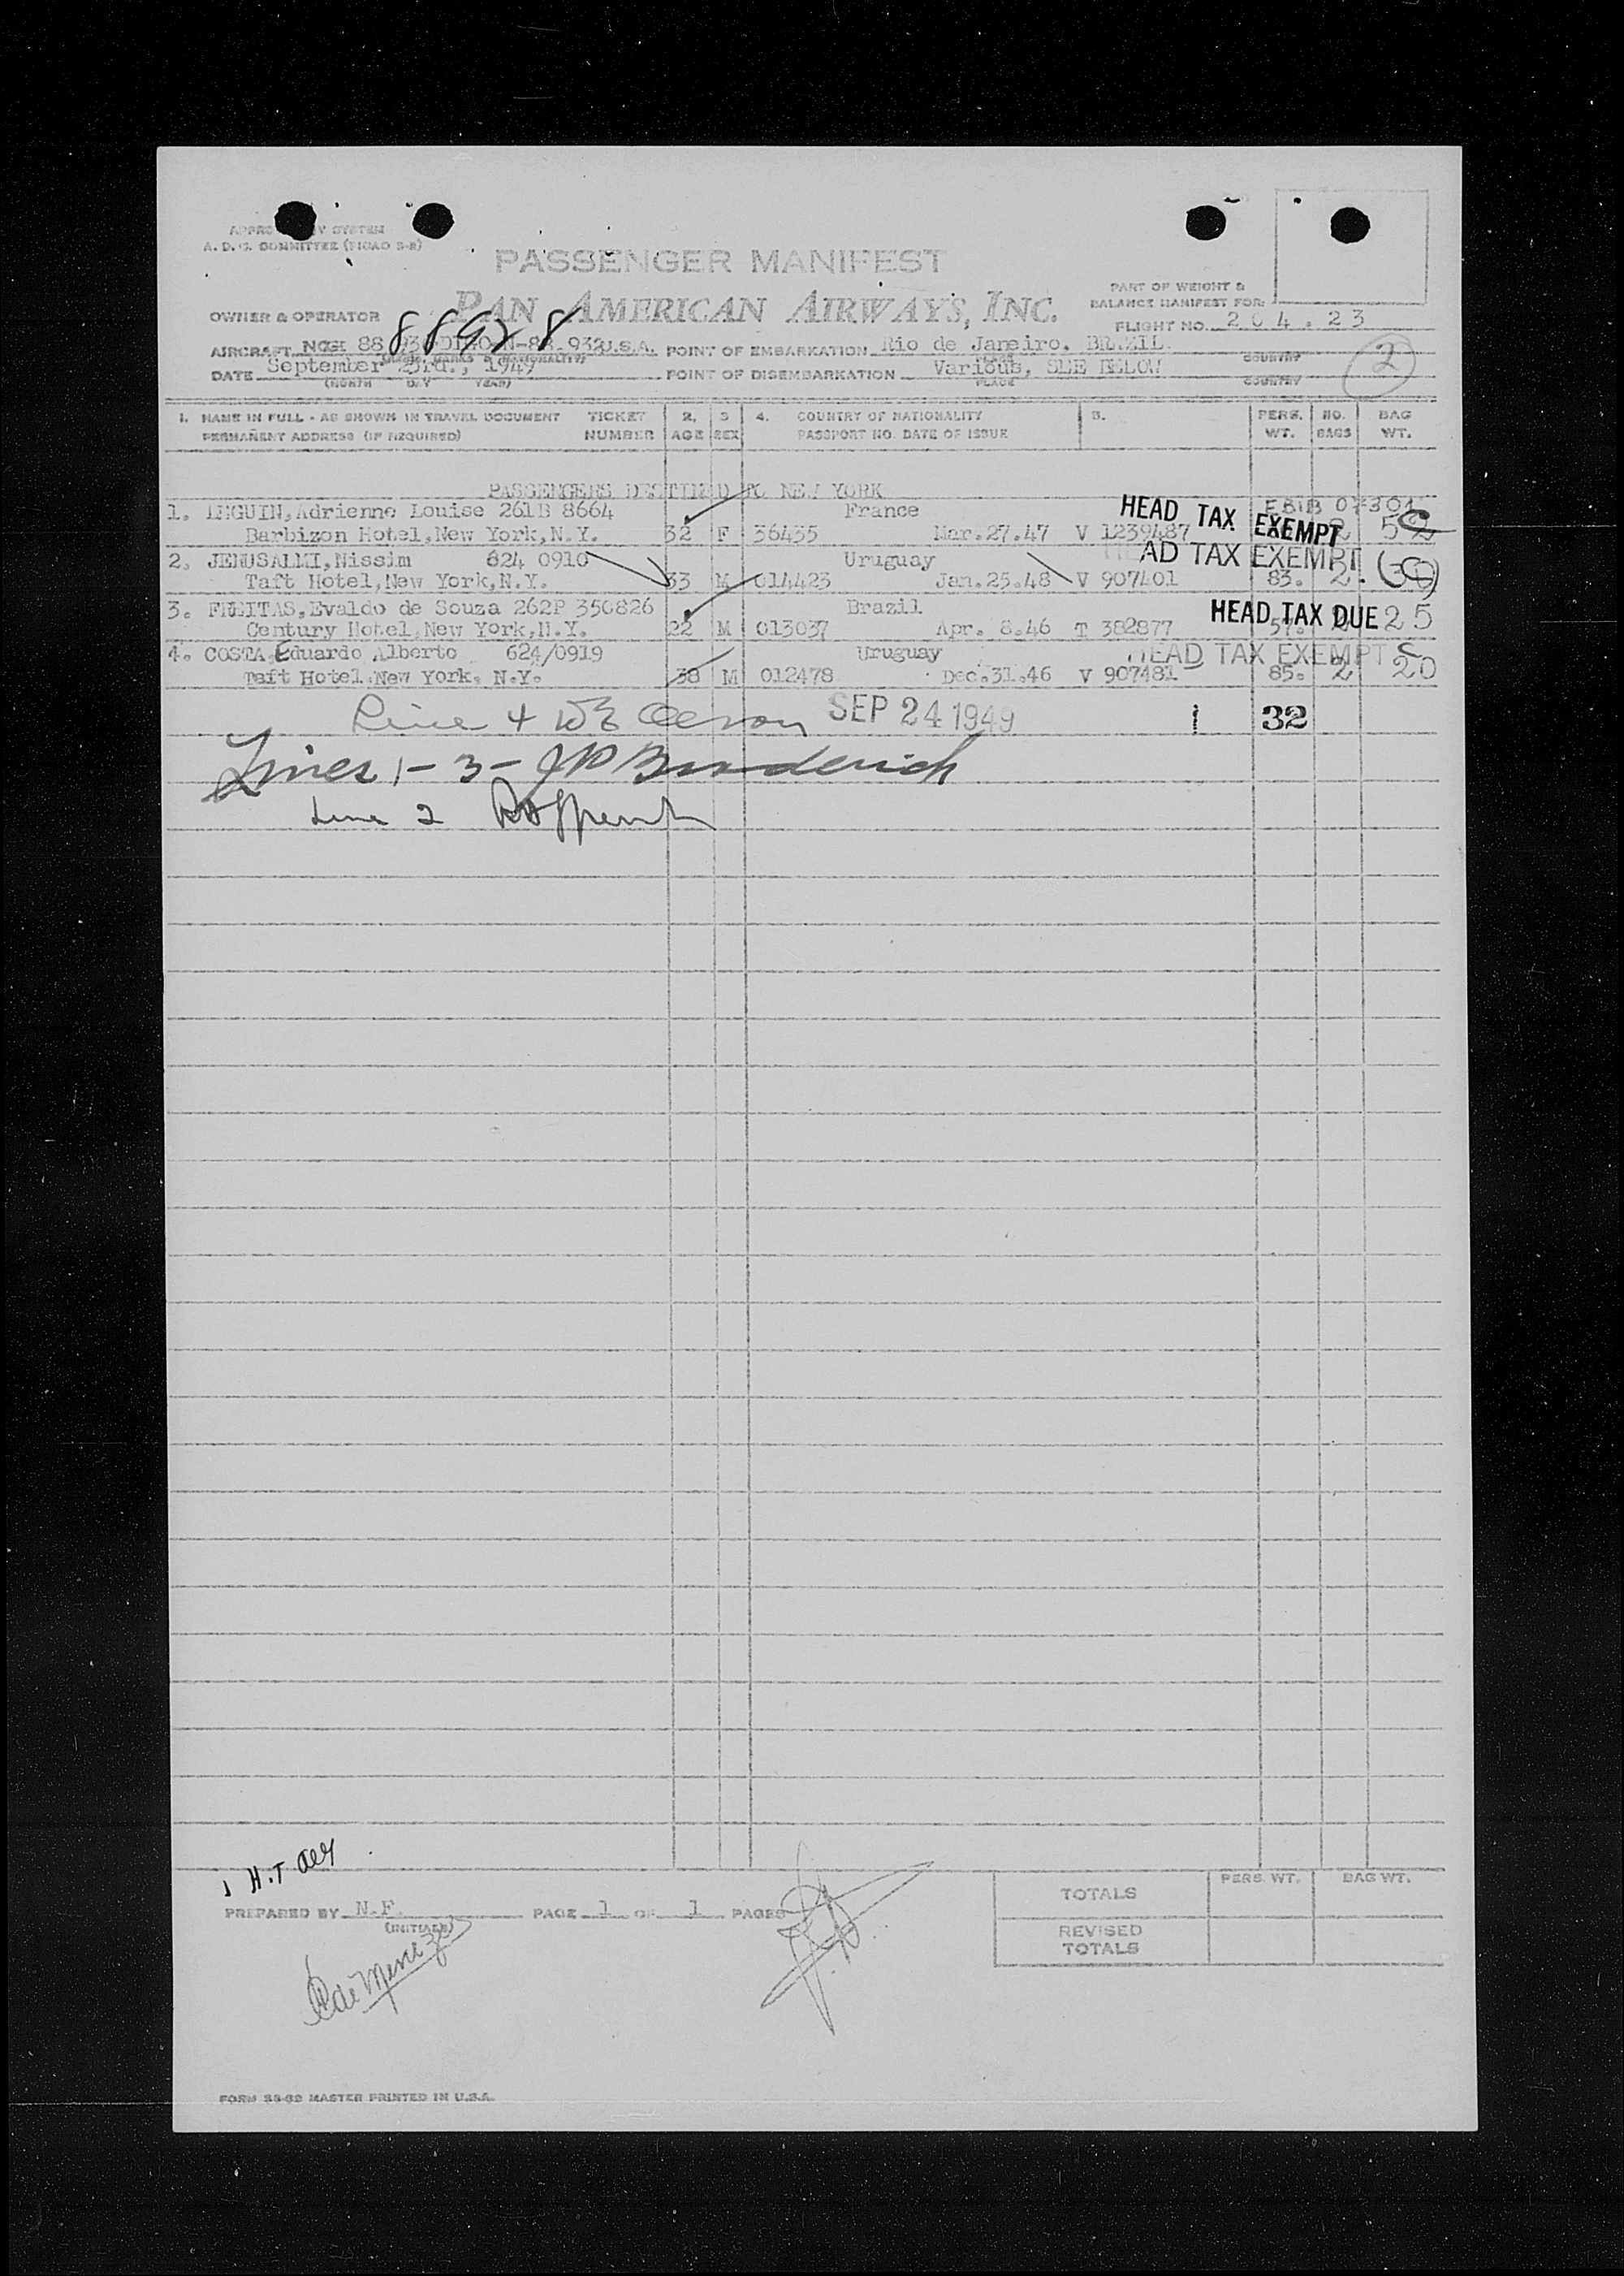 A. D. S. COMMITTEE (PICAO S-R)
PASSENGER MANIFEST
PART OF WEIGHT &
BALANCE MANIFEST FOR:
OWNER & OPERATOR PAN AMERICAN AIRWAYS, INC.
FLIGHT NO. 204.23
88928
AIRCRAFT U.S.A. POINT OF EMBARKATION Rio de Janeiro, BRAZIL
PLACE COUNTRY
DATE September 23rd., 1949 POINT OF DISEMBARKATION Various, SEE BELOW
(MONTH DAY YEAR) PLACE COUNTRY
2
1. NAME IN FULL - AS SHOWN IN TRAVEL DOCUMENT TICKET 2. 3 4. COUNTRY OF NATIONALITY 5. PERS. NO. BAG
PERMANENT ADDRESS (IF REQUIRED) NUMBER AGE SEX PASSPORT NO. DATE OF ISSUE WT. BAGS WT.
PASSENGERS DESTINED TO NEW YORK
1. Adrienne Louise 261B 8664 France HEAD TAX EXEMPT
Barbizon Hotel, New York, N.Y. 32 F 36455 Mar.27.47 V 1239487
2. JERUSALMI, Nissim 824 0910 Uruguay AD TAX EXEMPT
Taft Hotel, New York, N.Y. 33 M 014423 Jan.25.48 V 907401 83. 2.
3. FREITAS, Evaldo de Souza 262P 350826 Brazil HEAD TAX DUE 25
Century Hotel, New York, N.Y. 22 M 013037 Apr. 8.46 T 382877 57.
4. COSTA, Eduardo Alberto 624/0919 Uruguay HEAD TAX EXEMPT
Taft Hotel, New York, N.Y. 38 M 012478 Dec.31.46 V 907481 85. 2 20
Line 4 SEP 24 1949 1 32
Lines 1 - 3 - JP Broderick
Line 2
1 H.T
PREPARED BY N.F. PAGE 1 OF 1 PAGES
(INITIALS)
TOTALS PERS. WT. BAG WT.
REVISED
TOTALS
FORM MASTER PRINTED IN U.S.A.